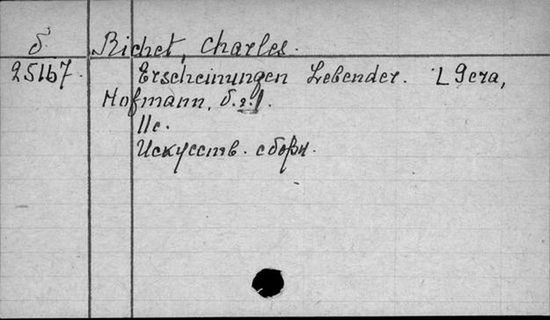 б Richet, Charles.
25167. Erscheinungen Lebender. L Gera,
Hofmann, б.г.].
IIс.
Искусств. сборн.